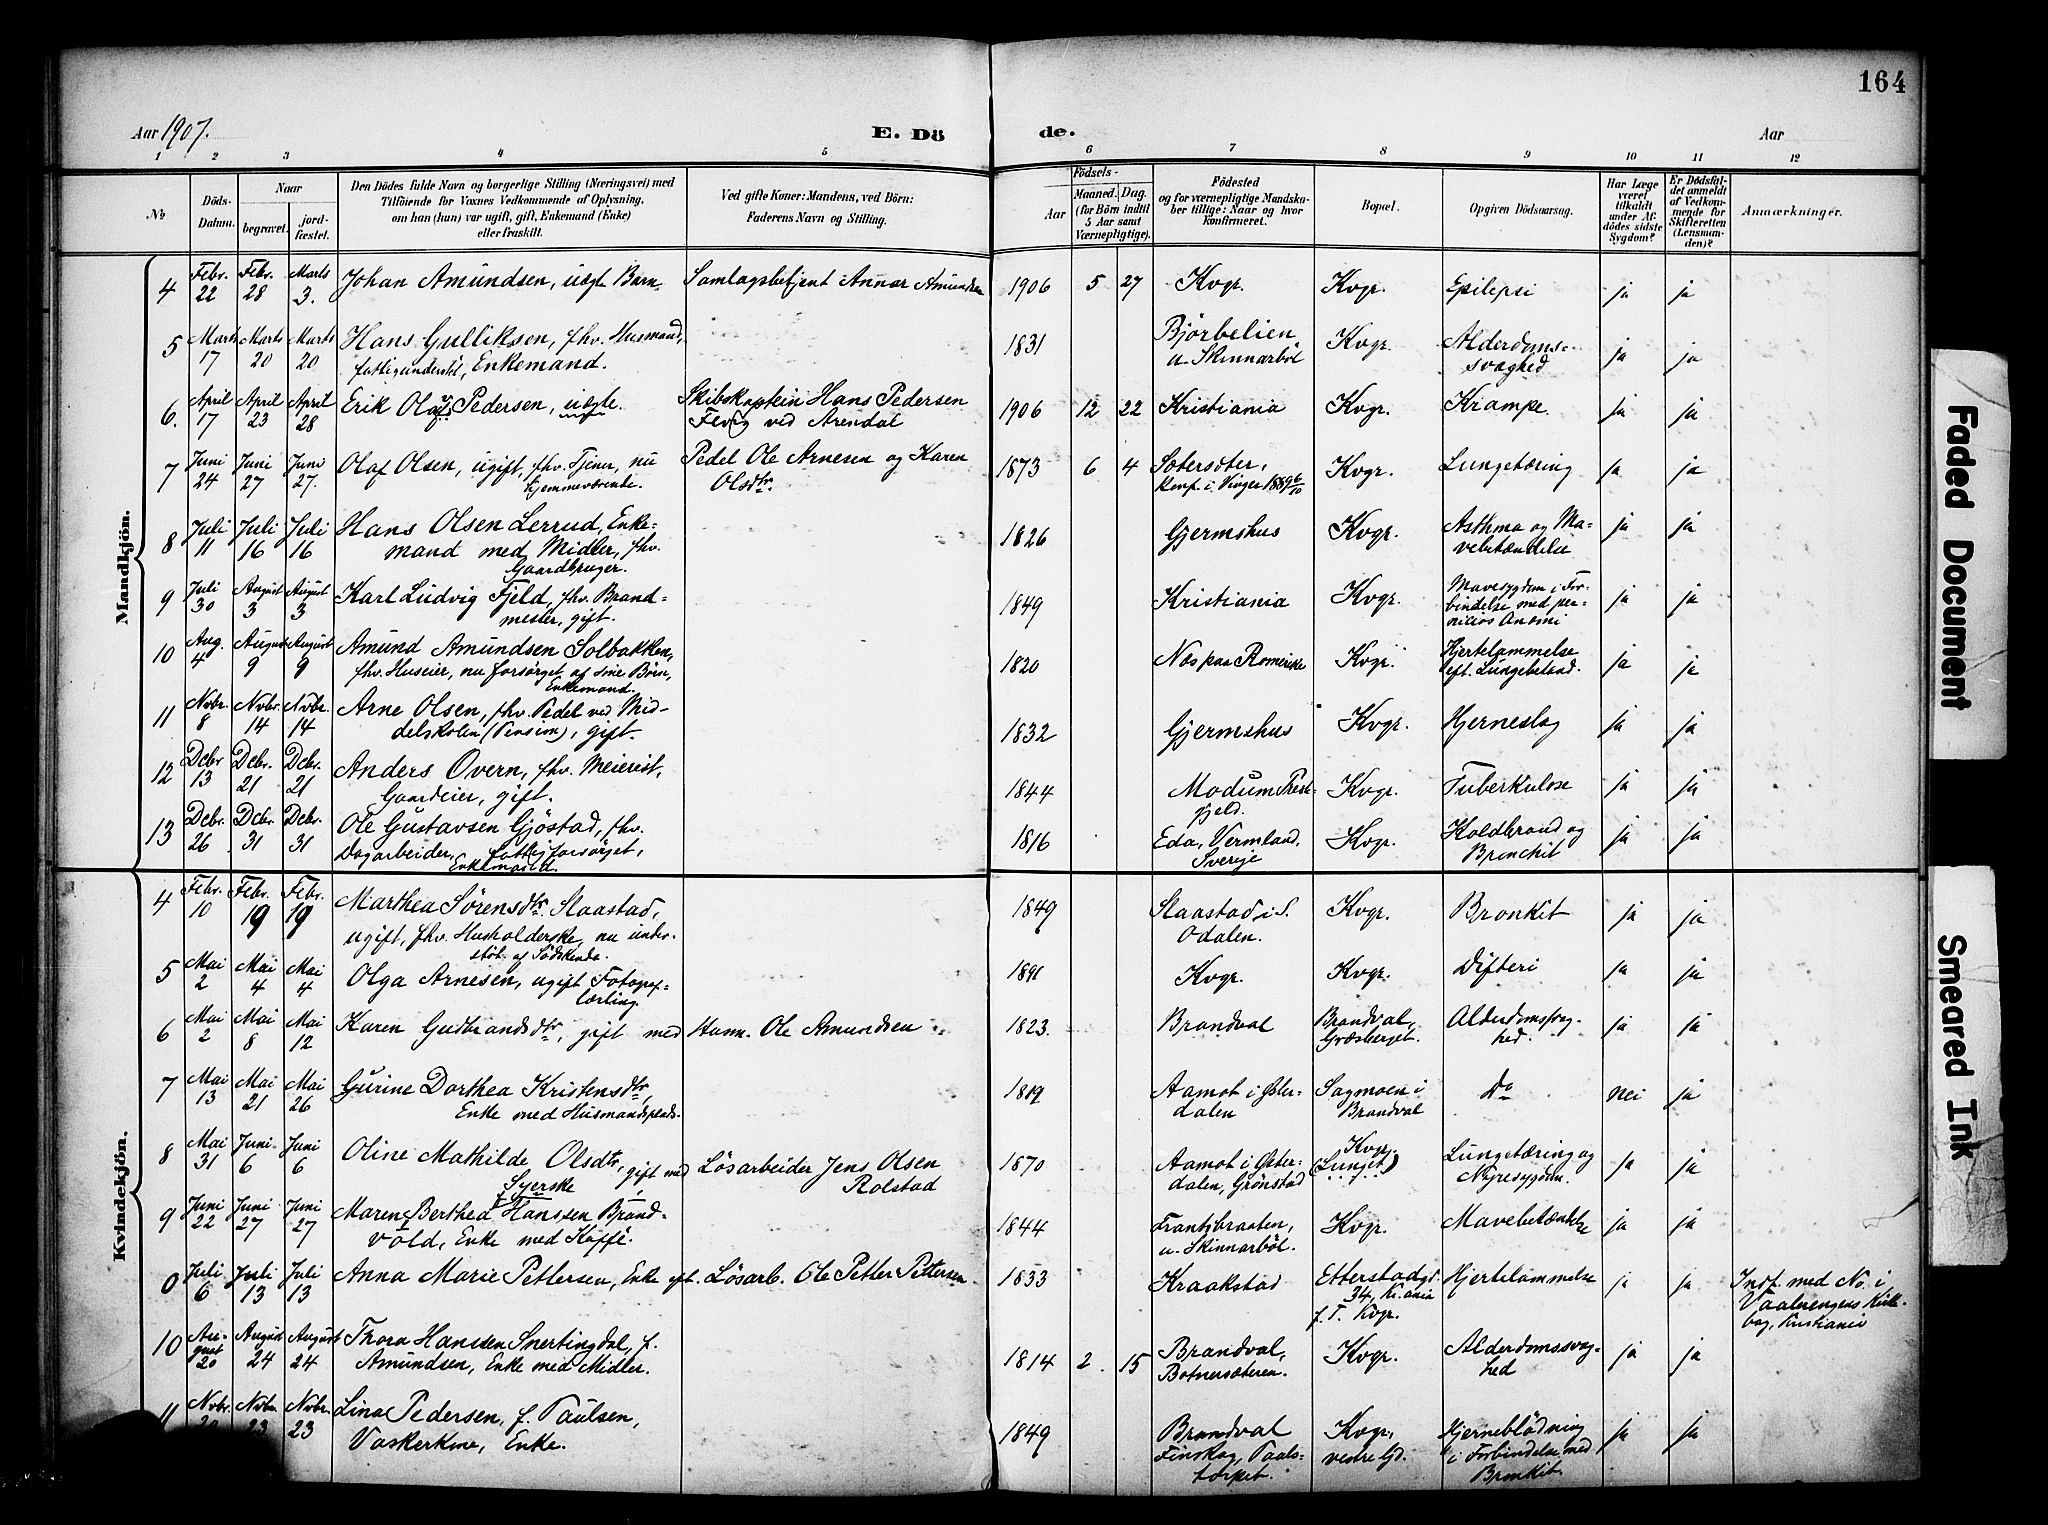 164
Aar 1907. E. Dö de. Aar
1 2 3 4 5 6 7 8 9 10 11 12
No
Döds-Datum.
Naar
begravet.
jord-fæstet.
Den Dödes fulde Navn og borgerlige Stilling (Næringsvei) med
Tilföiende for Voxnes Vedkommende af Oplysning,
om han (hun) var ugift, gift, Enkemand (Enke)
eller fraskilt.
Ved gifte Koner: Mandens, ved Börn:
Faderens Navn og Stilling.
Födsels-
Aar
Maaned. Dag.
(for Börn indtil
5 Aar samt
Værnepligtige).
Födested
og for værnepligtige Mandska-
ber tillige: Naar og hvor
konfirmeret.
Bopæl.
Opgiven Dödsaarsag.
Har Læge
været
tilkaldt
under Af-
dödes sidste
Sygdom?
Er Dödsfal-
det anmeldt
af Vedkom-
mende for
Skifteretten
(Lensman-
den)?
Anmærkninger.
Mandkjön.
4 Febr. 22 Febr. 28 Marts 3. Johan Amundsen, uægte Barn Samlagsbetjent Annar Amundsen 1906 5 27 Kvgr. Kvgr. Epilepsi ja ja
5 Marts 17 Marts 20 Marts 20 Hans Gulliksen, fhv. Husmand,
fattigunderst., Enkemand. 1831 Björbelien
u. Skinnarböl Kvgr. Alderdoms-
svaghed ja ja
6. April 17 April 23 April 28 Erik Olaf Pedersen, uægte. Skibskaptein Hans Pedersen
Fevig ved Arendal 1906 12 22 Kristiania Kvgr. Krampe. ja ja
7 Juni 24 Juni 27 Juni 27. Olaf Olsen, ugift, fhv. Tjener, nu
hjemmeværende. Pedel Ole Arnesen og Karen
Olsdtr 1873 6 4 Sætersæter,
konf. i Vinger 1889 6/10 Kvgr. Lungetæring ja ja
8 Juli 11 Juli 16 Juli 16 Hans Olsen Lerrud, Enke-
mand med Midler, fhv.
Gaardbruger. 1826 Gjermshus Kvgr. Asthma og Ma-
vebetændelse ja ja
9 Juli 30 August 3 August 3 Karl Ludvig Fjeld, fhv. Brand-
mester, gift. 1849 Kristiania Kvgr. Mavesygdom i For-
bindelse med per-
niciøs Anæmi ja ja
10 Aug. 4 August 9 August 9 Amund Amundsen Solbakken,
fhv. Huseier, nu forsørget af sine Börn,
Enkemand. 1820 Næs paa Romerike Kvgr. Hjertelammelse
eft. Lungebetænd. ja ja
11 Novbr. 8 Novbr. 14 Novbr. 14 Arne Olsen, fhv. Pedel ved Mid-
delskolen (Pension), gift. 1832 Gjermshus Kvgr. Hjerneslag ja ja
12 Dcbr. 13 Dcbr. 21 Dcbr. 21 Anders Overn, fhv. Meierist,
Gaardeier, gift. 1844 Modum Preste-
gjeld. Kvgr. Tuberkulose ja ja
13 Dcbr. 26 Dcbr. 31 Dcbr. 31 Ole Gustavsen Gjöstad, fhv.
Dagarbeider, fattigforsørget,
Enkemand. 1816 Eda, Vermland,
Sverige Kvgr. Koldbrand og
Bronchit ja ja
Kvindekjön.
4 Febr. 10 Febr. 19 Febr. 19 Marthea Sörensdtr. Slaastad,
ugift, fhv. Husholderske, nu under-
støt. af Södskende. 1849 Slaastad i S.
Odalen. Kvgr. Bronkit ja ja
5 Mai 2 Mai 4 Mai 4 Olga Arnesen, ugift Fotograf-
lærling. 1891 Kvgr. Kvgr. Difteri ja ja
6 Mai 2 Mai 8 Mai 12 Karen Gudbrandsdtr, gift med Husm. Ole Amundsen 1823. Brandval Brandval,
Græsberget. Alderdomssvag-
hed. ja ja
7 Mai 13 Mai 21 Mai 26 Gurine Dorthea Kristensdtr,
Enke med Husmandsplads. 1819 Aamot i Øster-
dalen Sagmoen i
Brandval Do nei ja
8 Mai 31 Juni 6 Juni 6 Oline Mathilde Olsdtr, gift med
Syerske Lösarbeider Jens Olsen
Rolstad 1870 Aamot i Øster-
dalen, Grönstad Kvgr.
(Lunget) Lungetæring og
Nyresygdom. ja ja
9 Juni 22 Juni 27 Juni 27 Maren Berthea f. Hanssen Brand-
vold, Enke med Kaffe. 1844 Frantsbraaten,
u. Skinnarböl. Kvgr. Mavebetændelse ja ja
0 Juli 6 Juli 13 Juli 13 Anna Marie Pettersen, Enke eft. Lösarb. Ole Petter Pettersen 1833 Kraakstad Etterstadgd.
34, Kr.ania
f. T. Kvgr. Hjertelammelse ja ja Indf. med No. i
Vaalerengens Kirke-
bog, Kristiania
10 August 20 August 24 August 24 Thora Hanssen Snertingdal, f.
Amundsen, Enke med Midler. 1814 2. 15 Brandval,
Botnersæteren. Kvgr. Alderdomssvag-
hed ja ja
11 Novbr. 20 Novbr. 23 Novbr. 23 Lina Pedersen, f. Paulsen,
Vaskerkone, Enke. 1849 Brandval
Finskog, Paals-
torpet. Kvgr,
vestre Gd. Hjerneblödning
i Forbindelse med
Bronkit. ja ja
Faded Document
Smeared Ink